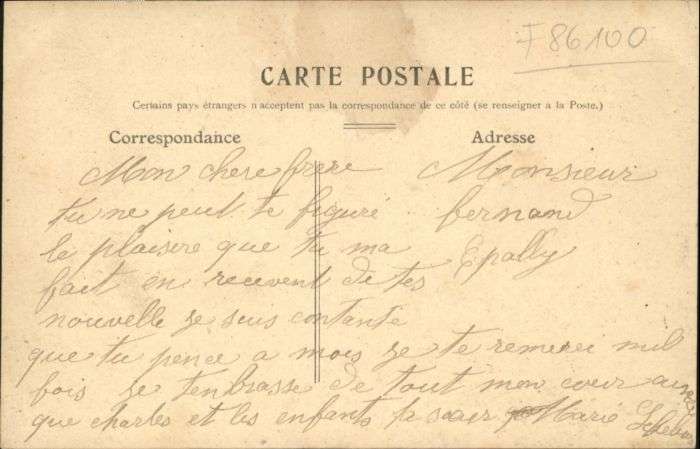 F 86100
CARTE POSTALE
Certains pays étrangers n'acceptent pas la correspondance de ce côté (se renseigner a la Poste.)
Correspondance
Adresse
Mon chere frere
tu ne peut te figuré
le plaisire que tu ma
fait en recevent de tes
nouvelle je suis contante
que tu pence a mois je te remerci mil
fois je tenbrasse de tout mon cœur
que charles et les enfants ta sœur Marie
Monsieur
fernand
Epally